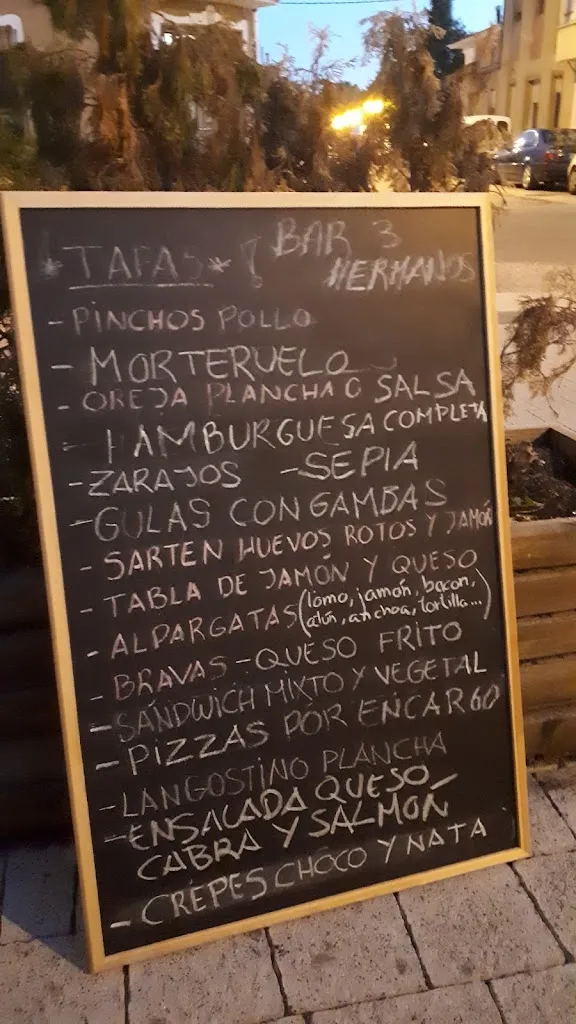 *TAPAS* ! BAR 3
HERMANOS
- PINCHOS POLLO
- MORTERUELO
- OREJA PLANCHA O SALSA
- HAMBURGUESA COMPLETA
- ZARAJOS - SEPIA
- GULAS CON GAMBAS
- SARTEN HUEVOS ROTOS Y JAMÓN
- TABLA DE JAMÓN Y QUESO
- ALPARGATAS (lomo, jamón, bacon,
atún, anchoa, tortilla...)
- BRAVAS - QUESO FRITO
- SÁNDWICH MIXTO Y VEGETAL
- PIZZAS POR ENCARGO
- LANGOSTINO PLANCHA
- ENSALADA QUESO
CABRA Y SALMÓN
- CRÉPES CHOCO Y NATA